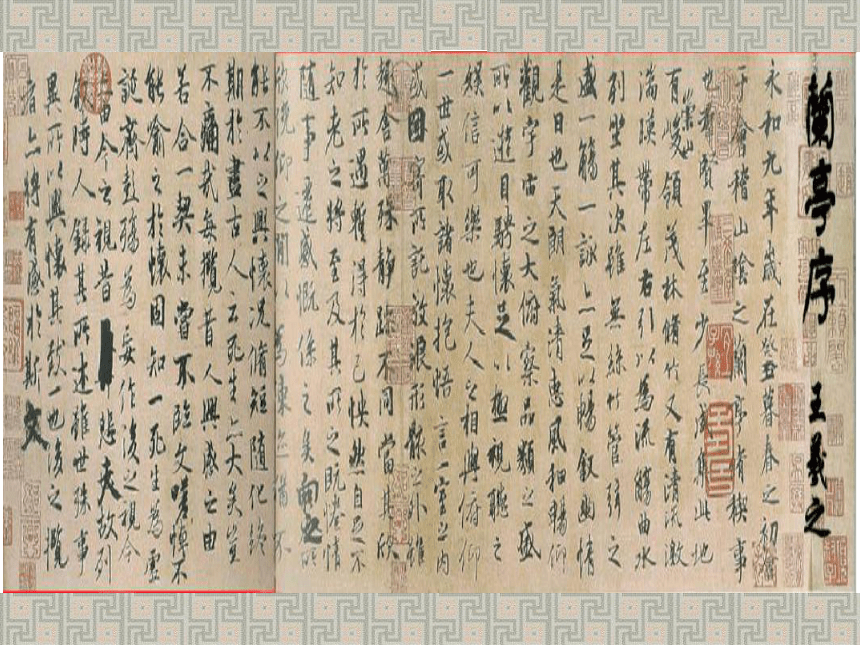 蘭亭序 王羲之
永和九年歲在癸丑暮春之初會
于會稽山陰之蘭亭脩禊事
也羣賢畢至少長咸集此地
有崇山峻領茂林脩竹又有清流激
湍暎帶左右引以為流觴曲水
列坐其次雖無絲竹管弦之
盛一觴一詠亦足以暢敘幽情
是日也天朗氣清惠風和暢仰
觀宇宙之大俯察品類之盛
所以遊目騁懷足以極視聽之
娛信可樂也夫人之相與俯仰
一世或取諸懷抱悟言一室之內
或因寄所託放浪形骸之外雖
趣舍萬殊靜躁不同當其欣
於所遇暫得於己怏然自足不
知老之將至及其所之既惓情
隨事遷感慨係之矣向之所
欣俛仰之間以為陳迹猶不
能不以之興懷況脩短隨化終
期於盡古人云死生亦大矣豈
不痛哉每攬昔人興感之由
若合一契未嘗不臨文嗟悼不
能喻之於懷固知一死生為虛
誕齊彭殤為妄作後之視今
亦由今之視昔悲夫故列
敘時人錄其所述雖世殊事
異所以興懷其致一也後之攬
者亦將有感於斯文